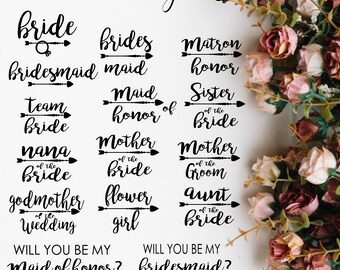 bride
bridesmaid
team
bride
nana
of the
bride
godmother
of the
Wedding
brides
maid
Maid
of
honor
Mother
of the
bride
flower
girl
Matron
honor
Sister
of the
bride
Mother
of the
Groom
aunt
of the
bride
WILL YOU BE MY
Maid of honor?
WILL YOU BE MY
bridesmaid?